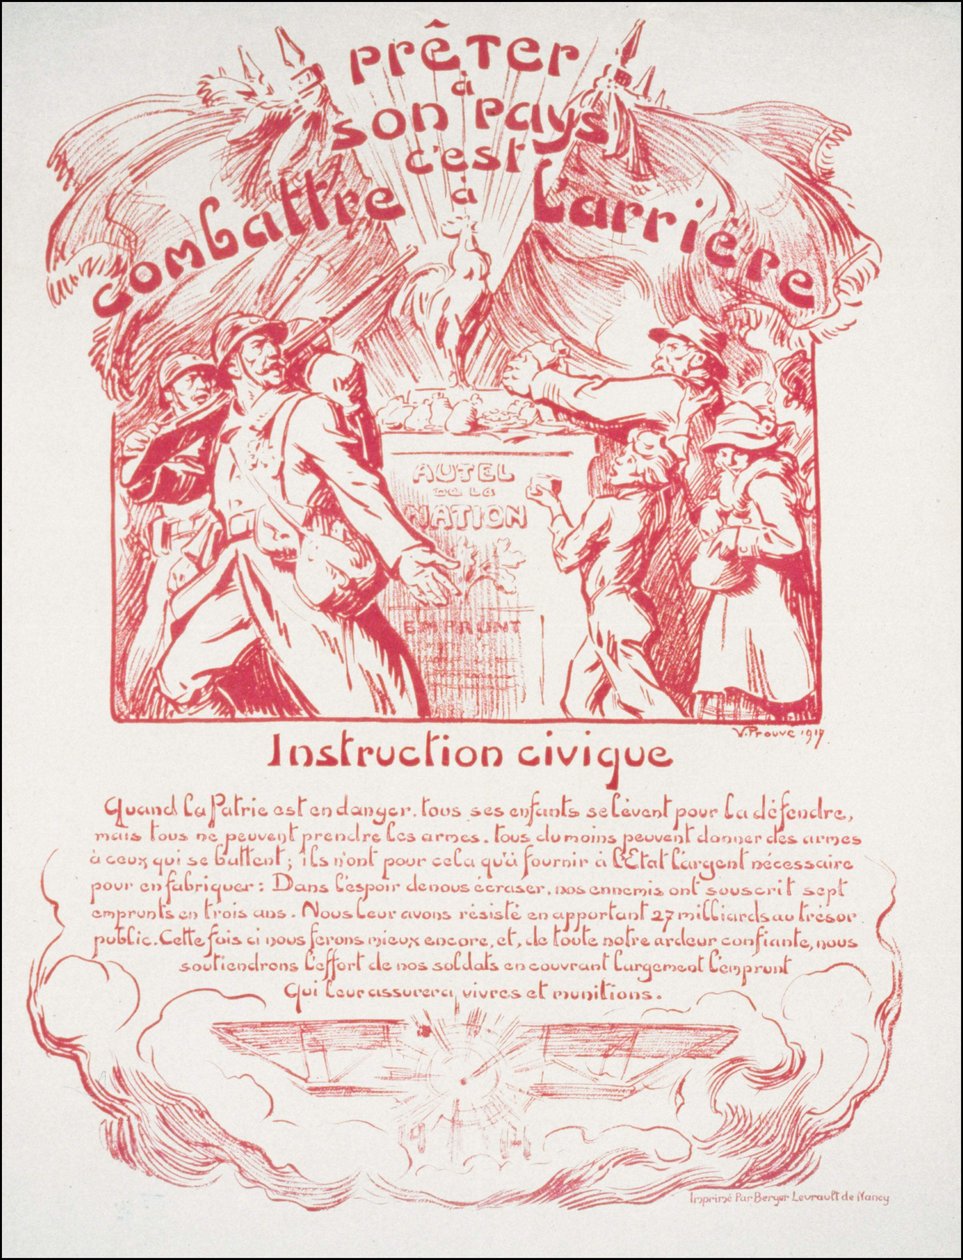 PRÊTER
à
SON PAYS
C'EST
à
COMBATTRE L'ARRIÈRE
AUTEL
DE LA
NATION
EMPRUNT
V. Prouvé 1917
Instruction civique
Quand la Patrie est en danger, tous ses enfants se lèvent pour la défendre,
mais tous ne peuvent prendre les armes. tous du moins peuvent donner des armes
à ceux qui se battent; ils n'ont pour cela qu'à fournir à l'Etat l'argent nécessaire
pour en fabriquer: Dans l'espoir de nous écraser, nos ennemis ont souscrit sept
emprunts en trois ans. Nous leur avons résisté en apportant 27 milliards au trésor
public. Cette fois ci nous ferons mieux encore, et, de toute notre ardeur confiante, nous
soutiendrons l'effort de nos soldats en couvrant largement l'emprunt
qui leur assurera, vivres et munitions.
Imprimé Par Berger Levrault de Nancy